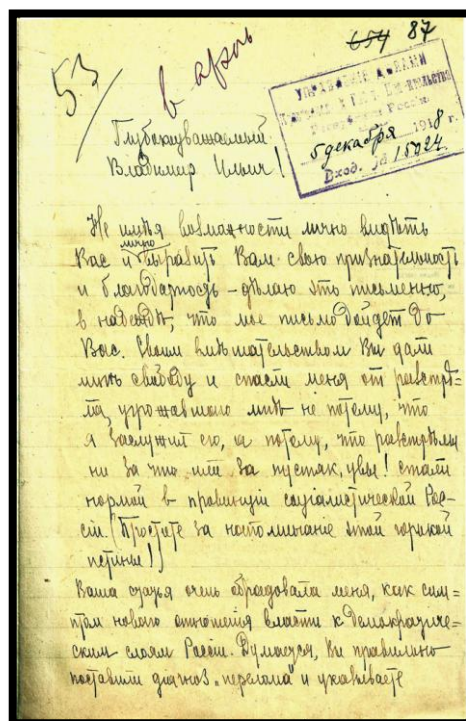 53
в арх
654 87
УПРАВЛЕНИЕ ДЕЛАМИ
5 декабря 1918
Вход. № 15024.
Глубокоуважаемый
Владимир Ильич!
Не имѣя возможности лично видѣть
Вас и лично выразить Вам свою признательность
и благодарность – дѣлаю это письменно,
в надеждѣ, что мое письмо дойдет до
Вас. Своим вмѣшательством Вы дали
мнѣ свободу и спасли меня от разстрѣ=
ла, угрожавшаго мнѣ не потому, что
я заслужил его, а потому, что разстрѣлы
ни за что или за пустяк, увы! стали
нормой в провинціи соціалистической Рос-
сіи. (Простите за напоминание этой горькой
истины!)
Ваша статья очень обрадовала меня, как сим=
птом новаго отношенія власти к демократиче=
ским слоям Россіи. Думается, Вы правильно
поставили діагноз „перелома" и указываете